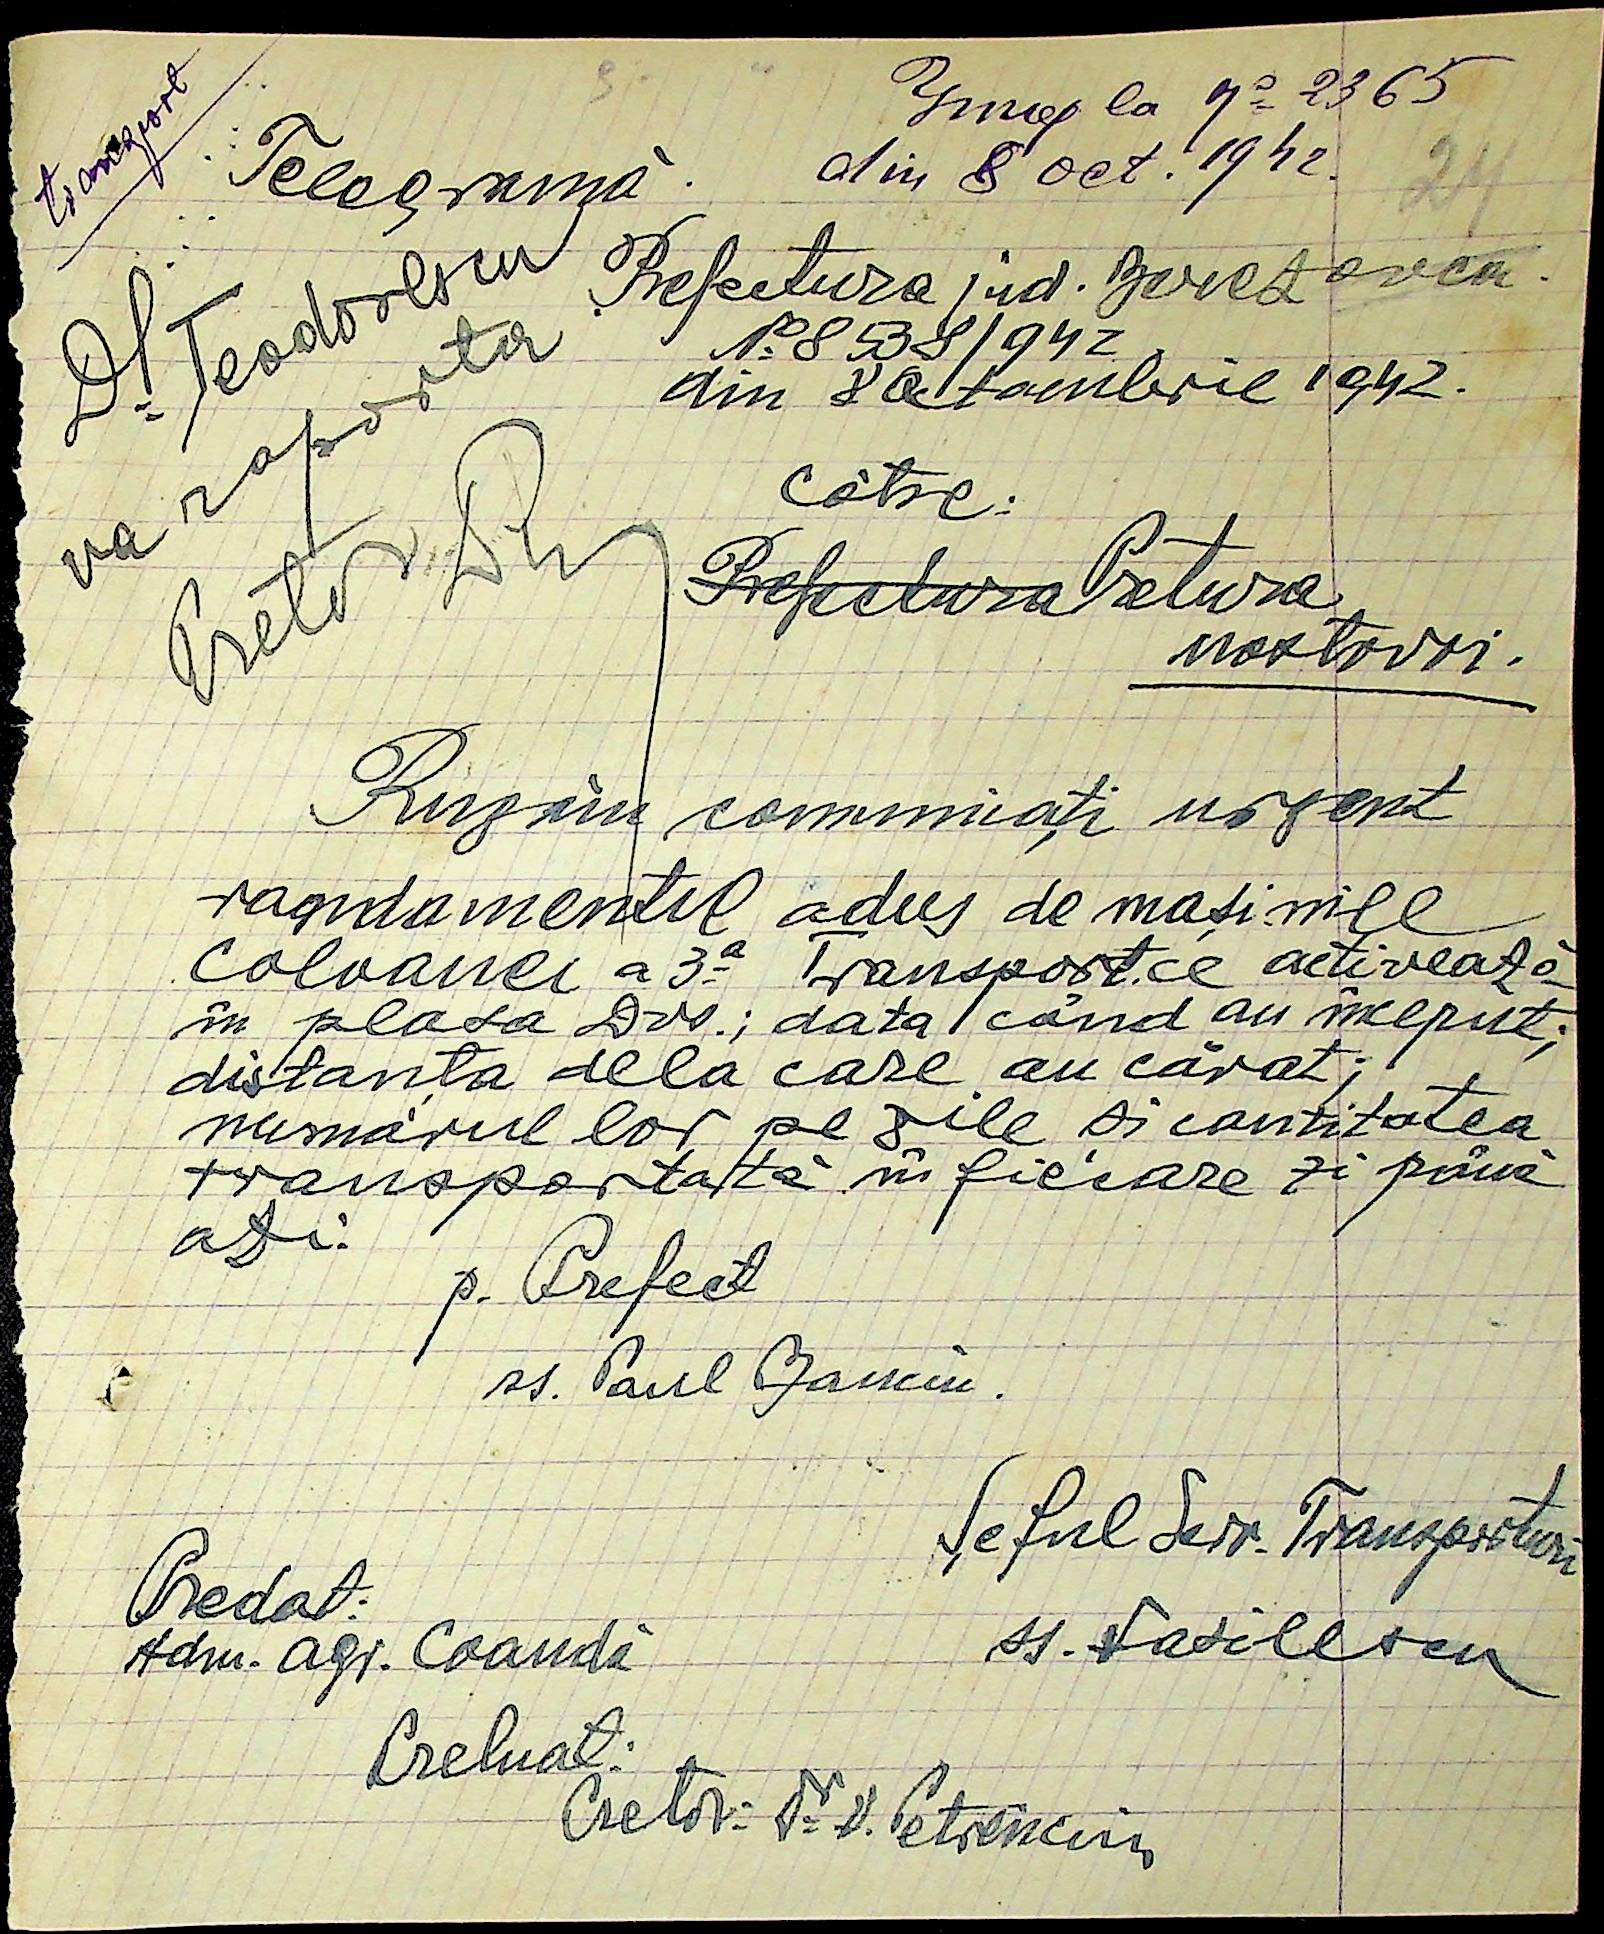 transport
Înreg la No 2365
din 8 oct. 1942.
24
Telegramă.
Dl Teodorescu
va raporta
Pretor
Prefectura jud. Berezovca.
No 8538/942
din 8 Octombrie 1942.
către:
Prefectura Pretura
Mostovoi.
Rugăm comunicați urgent
randamentul adus de mașinile
Coloanei a 3-a Transport ce activează
în plasa Dvs.; data când au început;
distanța dela care au cărat;
numărul lor pe zile și cantitatea
transportată în fiecare zi până
azi.
p. Prefect
ss. Paul
Șeful Serv. Transporturi
ss. Vasilescu
Predat:
Adm. agr. Coandă
Preluat:
Pretor: Dr V. Petrenciu